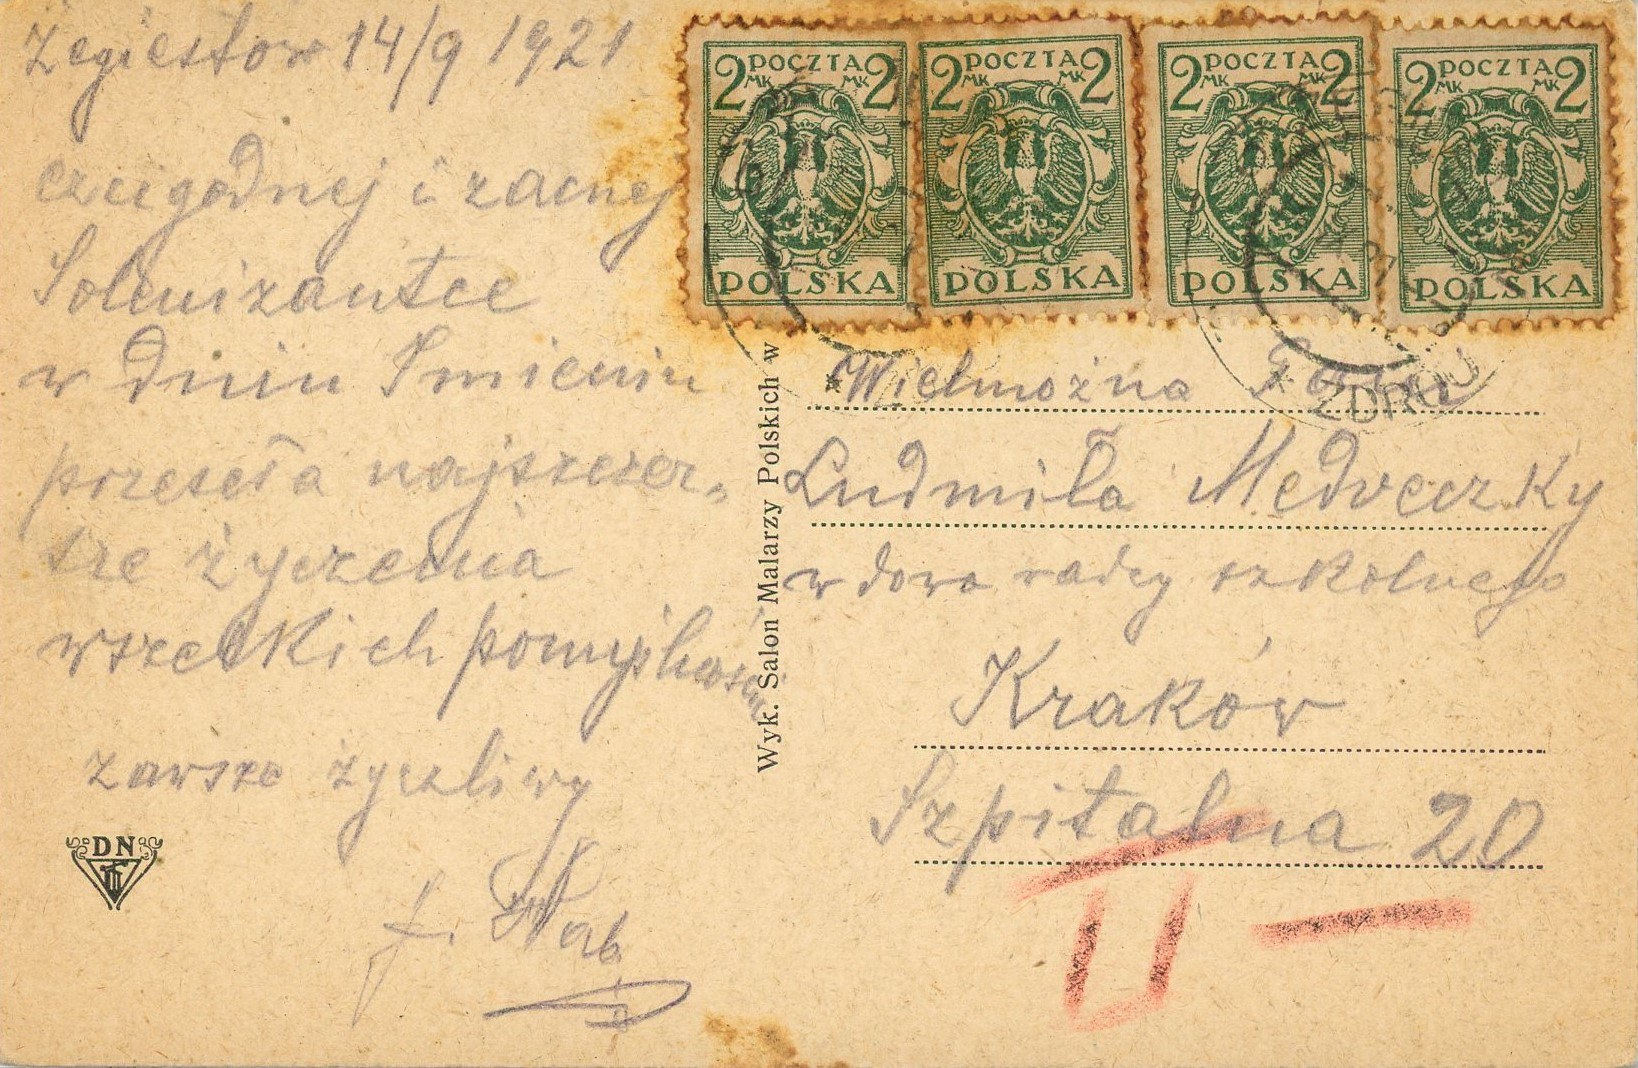 Żegiestów 14/9 1921
czcigodnej i zacnej
Solenizantce
w dniu Imienin
przeseła najszczer-
sze życzenia
wszelkich pomyślności
zawsze życzliwy
DN
2 POCZTA 2
MK MK
POLSKA
2 POCZTA 2
MK MK
POLSKA
2 POCZTA 2
MK MK
POLSKA
2 POCZTA 2
MK MK
POLSKA
ZDRÓJ
Wyk. Salon Malarzy Polskich w
Wielmożna Pani
Ludmiła Medveczky
wdowa radcy szkolnego
Kraków
Szpitalna 20
II —